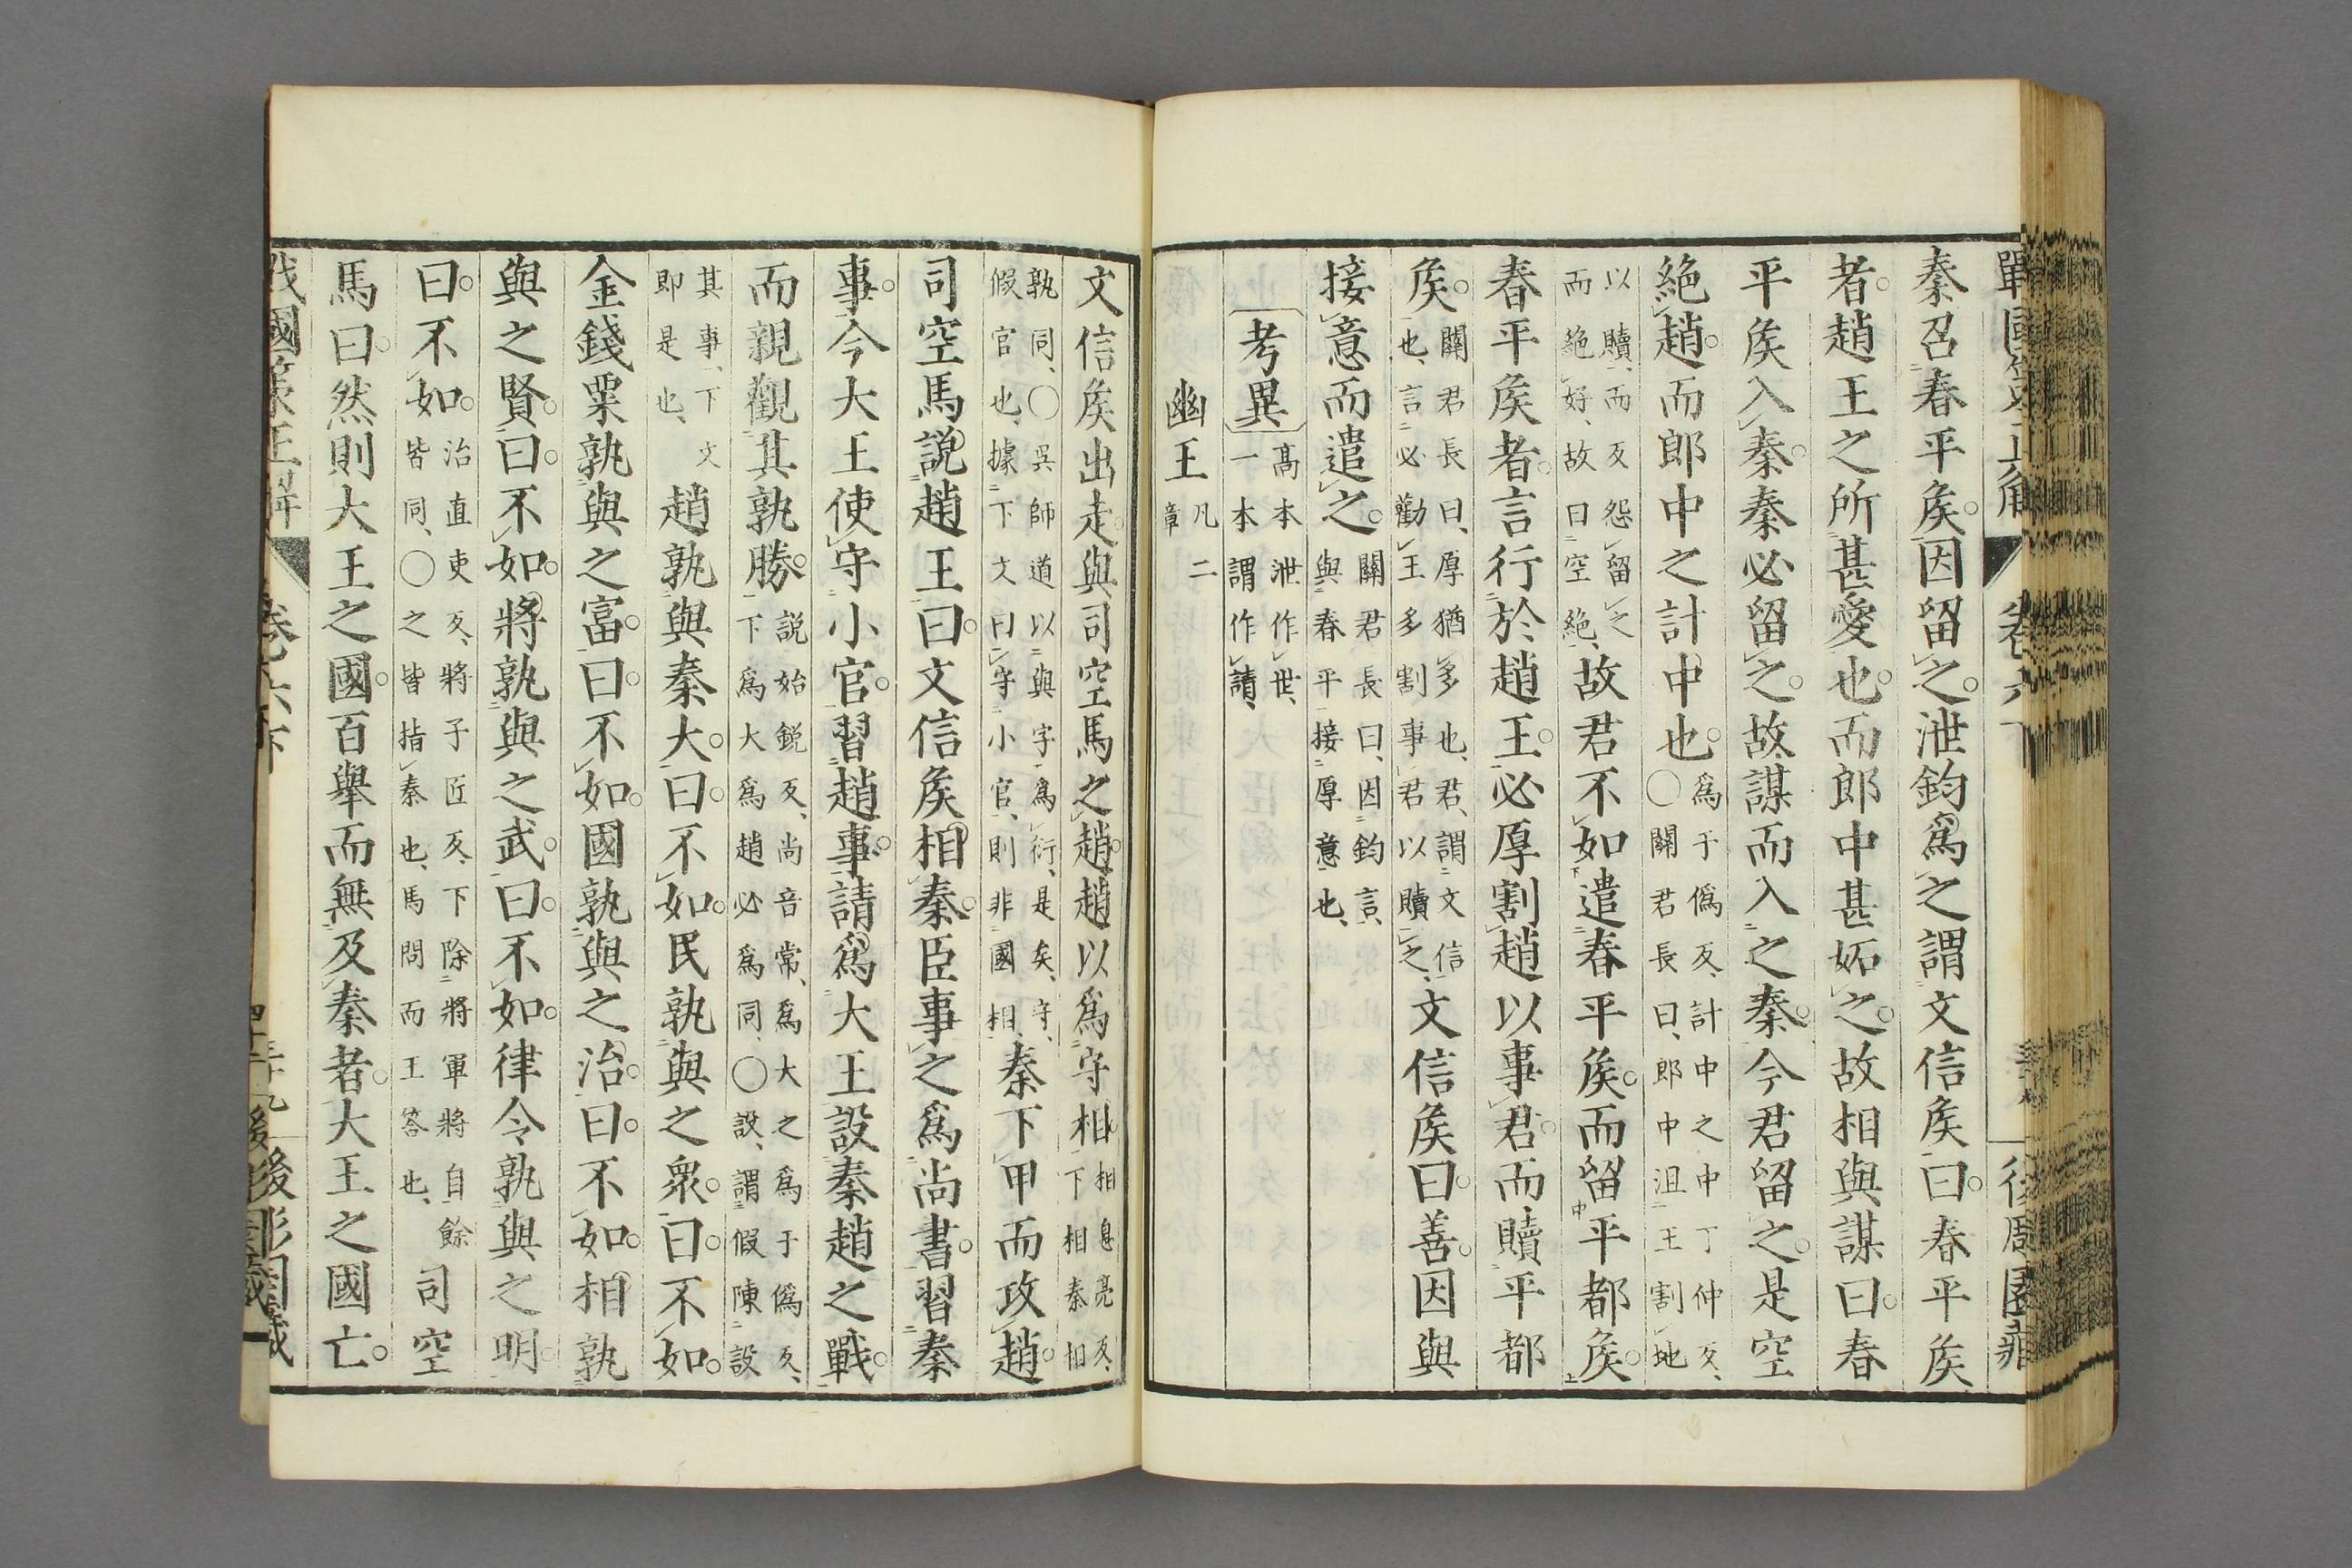 戰國策正解 卷六下 後周園藏
秦召春平矦。因留之。泄鈞爲之謂文信矦。曰。春平矦
者。趙王之所甚愛也。而郎中甚妬之。故相與謀曰。春
平矦入秦。秦必留之。故謀而入之秦。今君留之。是空
絕趙。而郎中之計中也。爲于僞反、計中之中丁仲反、○關君長曰、郎中沮王割地
以贖、而反怨留之、而絕好、故曰空絕、故君不如遣春平矦。而留平都矦。
春平矦者。言行於趙王。必厚割趙以事君。而贖平都
矦。關君長曰、厚猶多也、君、謂文信也、言必勸王多割事君以贖之、文信矦曰。善。因與
接意而遣之。關君長曰、因鈞言、與春平接厚意也、
考異 高本泄作世、一本謂作請、
幽王 凡二章
文信矦出走。與司空馬之趙。趙以爲守相 相息亮反、下相秦相
孰同、○吳師道以與字爲衍、是矣、守、假官也、據下文曰守小官、則非國相、秦下甲而攻趙。
司空馬說趙王曰。文信矦相秦。臣事之爲尚書。習秦
事。今大王使守小官。習趙事。請爲大王設秦趙之戰。
而親觀其孰勝。說始銳反、尚音常、爲大之爲于僞反、下爲大爲趙必爲同、○設、謂假陳設
其事、下文即是也、趙孰與秦大。曰。不如。民孰與之眾。曰。不如。
金錢粟孰與之富。曰。不如。國孰與之治。曰。不如。相孰
與之賢。曰。不如。將孰與之武。曰。不如。律令孰與之明。
曰。不如。治直吏反、將子匠反、下除將軍將自餘皆同、○之皆指秦也、馬問而王答也、司空
馬曰。然則大王之國。百舉而無及秦者。大王之國亡。
戰國策正解 卷六下 後周園藏